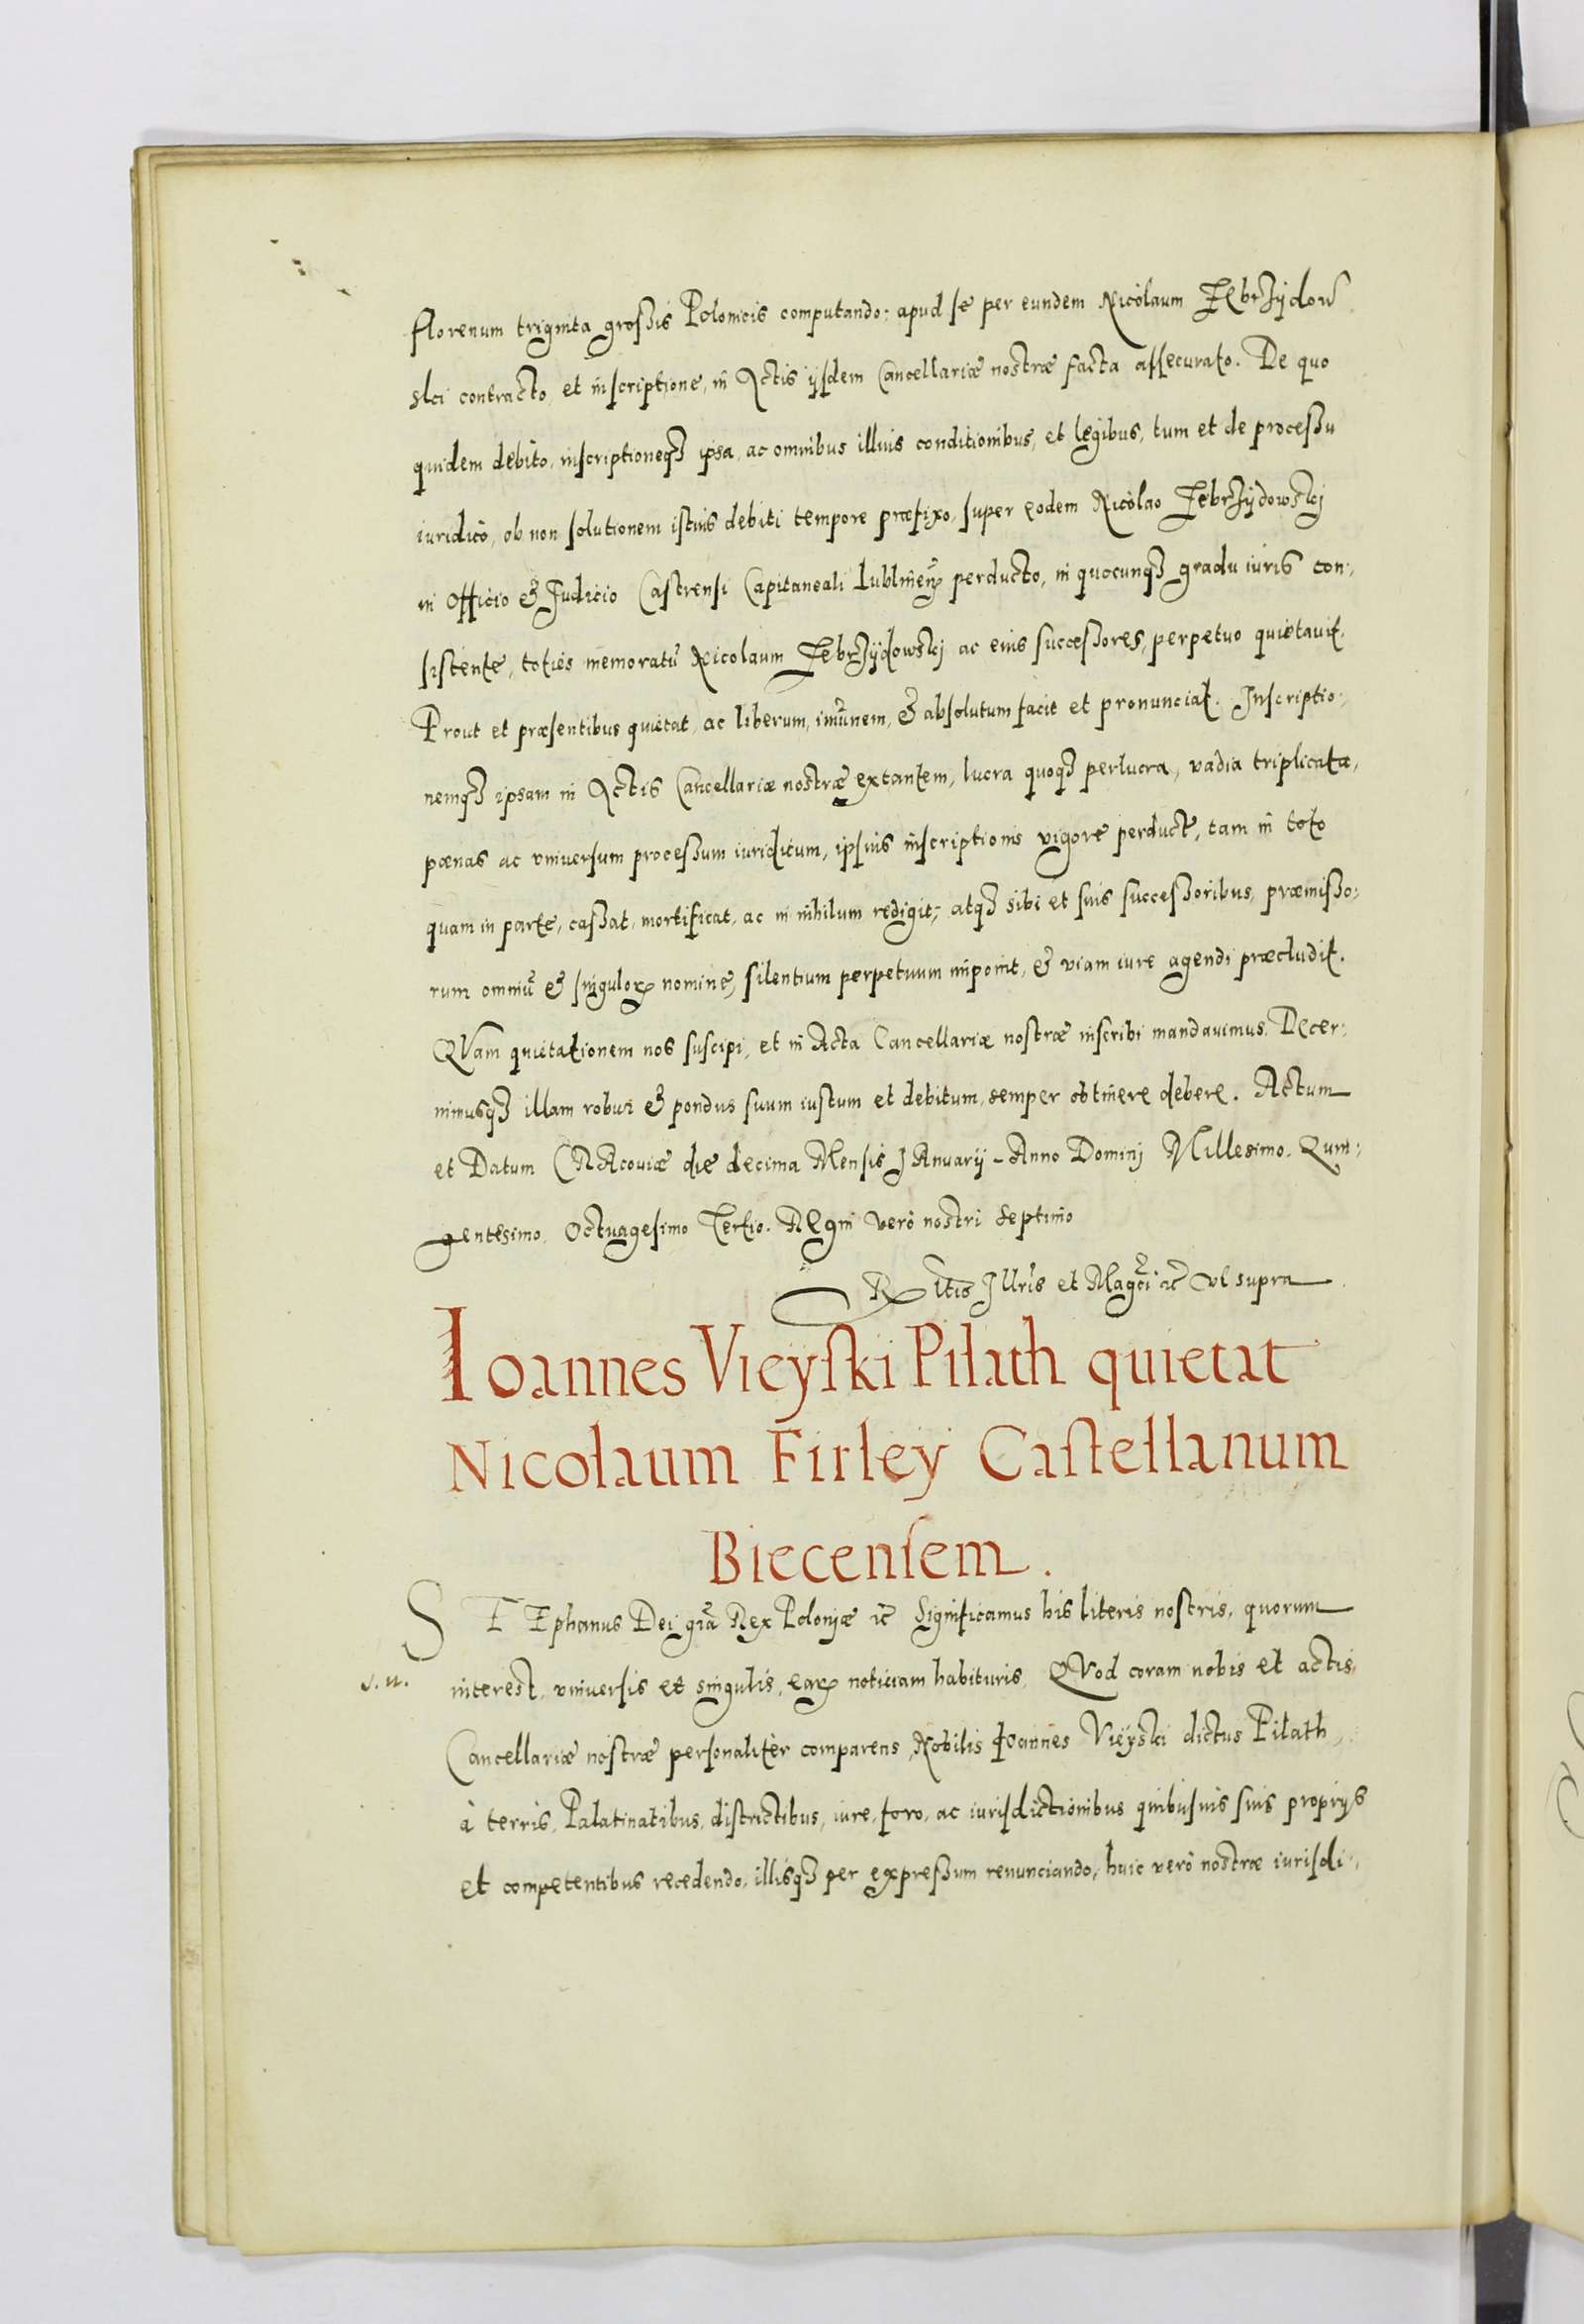 florenum triginta grossis Polonicis computando: apud se per eundem Nicolaum Zebrzÿdow
ski contracto et inscriptione, in Actis ijsdem Cancellariæ nostræ facta assecurato. De quo
quidem debito, inscriptioneqȝ ipsa, ac omnibus illius conditionibus, et legibus, tum et de processu
iuridico, ob non solutionem istius debiti tempore præfixo, super eodem Nicolao Zebrzÿdowskj
in Officio & Judicio Castrensi Capitaneali Lublineñ perducto, in quocunqȝ gradu iuris con:,
sistente, toties memoratũ Nicolaum Zebrzÿdowskj ac eius successores, perpetuo quietauit.
Prout et præsentibus quietat, ac liberum, imũnem, & absolutum facit et pronunciat. Inscriptio:,
nemqȝ ipsam in Actis Cancellariæ nostræ extantem, lucra quoqȝ perlucra, vadia triplicata,
pœnas ac vniuersum processum iuridicum, ipsius inscriptionis vigore perductũ, tam in toto
quam in parte, cassat, mortificat, ac in nihilum redigit; atqȝ sibi et suis successoribus, præmisso:
rum omniũ & singuloꝝ nomine, silentium perpetuum imponit, & viam iure agendi præcludit.
QVam quietationem nos suscipi, et in Acta Cancellariæ nostræ inscribi mandauimus. Decer:
nimusqȝ illam robur & pondus suum iustum et debitum, semper obtinere debere. Actum
et Datum CRAcouiæ die decima Mensis JAnuarij Anno Dominj Millesimo. Quin:
gentesimo, Octuagesimo Tertio. REgni verò nostri septimo
Rltio Jllris et Magci ꝛc̃ vt supra
Ioannes Vieyski Pilath quietat
Nicolaum Firley Castellanum
Biecensem.
STEphanus Dei grã Rex Poloniæ ꝛc̃ Significamus his literis nostris, quorum
s. n. interest, vniuersis et singulis, eaꝝ noticiam habituris, QVod coram nobis et actis
Cancellariæ nostræ personaliter comparens, Nobilis Joannes Vieÿski dictus Pilath,
à terris, Palatinatibus, districtibus, iure, foro, ac iurisdictionibus quibusuis suis proprijs
et competentibus recedendo, illisqȝ per expressum renunciando, huic verò nostræ iurisdi:,